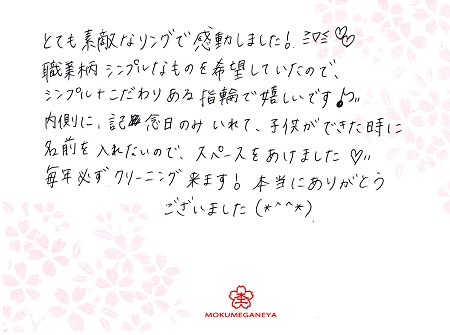 とても素敵なリングで感動しました！ ミ♡ミ♡♡
職業柄 シンプルなものを希望していたので、
シンプル＋こだわりある指輪で嬉しいです♪
内側に、記念日のみ いれて、子供ができた時に
名前を入れたいので、スペースをあけました♡
毎年必ず クリーニング 来ます！ 本当にありがとう
ございました (*^^*)
MOKUMEGANEYA